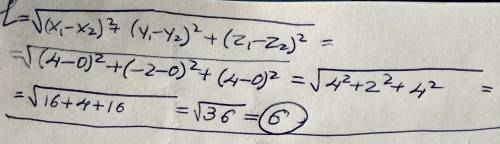 L=√(x₁-x₂)²+(y₁-y₂)²+(z₁-z₂)² =
=√(4-0)²+(-2-0)²+(4-0)² =√4²+2²+4² =
=√16+4+16 =√36=6